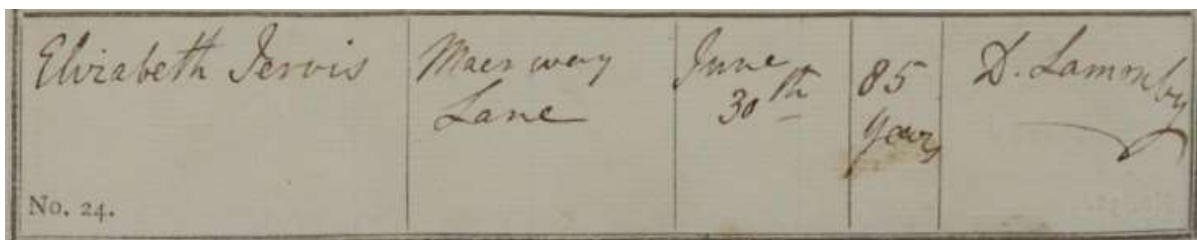 Elizabeth Jervis
Maer way
Lane
June
30th
85
years
D. Lammby
No. 24.